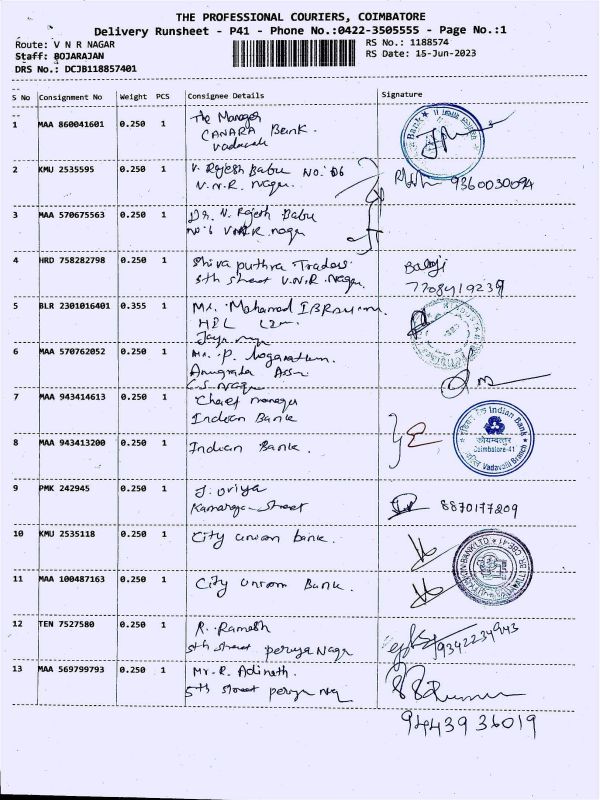 THE PROFESSIONAL COURIERS, COIMBATORE
Delivery Runsheet - P41 - Phone No.:0422-3505555 - Page No.:1
Route: V N R NAGAR
RS No.: 1188574
Staff: BOJARAJAN
RS Date: 15-Jun-2023
DRS No.: DCJB118857401
S No Consignment No Weight PCS Consignee Details Signature
1 MAA 860041601 0.250 1 The Manager
CANARA Bank.
Vadavalli
2 KMU 2535595 0.250 1 V. Rajesh Babu No: 06
V.N.R. Nagar. 9360030094
3 MAA 570675563 0.250 1 Dr. V. Rajesh Babu
No: 6 VNR nagar
4 HRD 758282798 0.250 1 Shiva puthra Traders Balaji
5th street V.N.R. Nagar. 7708419239
5 BLR 2301016401 0.355 1 Mr. Mohamad IBRahim
6 MAA 570762052 0.250 1 Mr. P.
Anugraha
C.S. Nagar
7 MAA 943414613 0.250 1 Chief manager
Indian Bank
8 MAA 943413200 0.250 1 Indian Bank.
Indian Bank
कोयम्बत्तूर
Coimbatore-41
Vadavalli Branch
9 PMK 242945 0.250 1 J. oviya
Kamaraj Street 8870177209
10 KMU 2535118 0.250 1 City union bank.
11 MAA 100487163 0.250 1 City union Bank.
12 TEN 7527580 0.250 1 R. Ramesh
5th street periya Nagar 9342234943
13 MAA 569799793 0.250 1 Mr. R. Adinath.
5th street
94439 36019